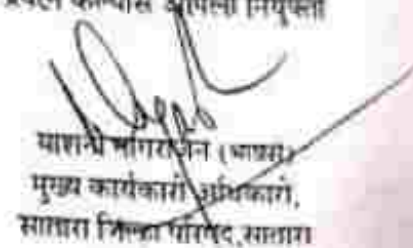 केल्यास आपली नियुक्ती
याशनी नागराजन (भाप्रसे)
मुख्य कार्यकारी अधिकारी,
सातारा जिल्हा परिषद,सातारा